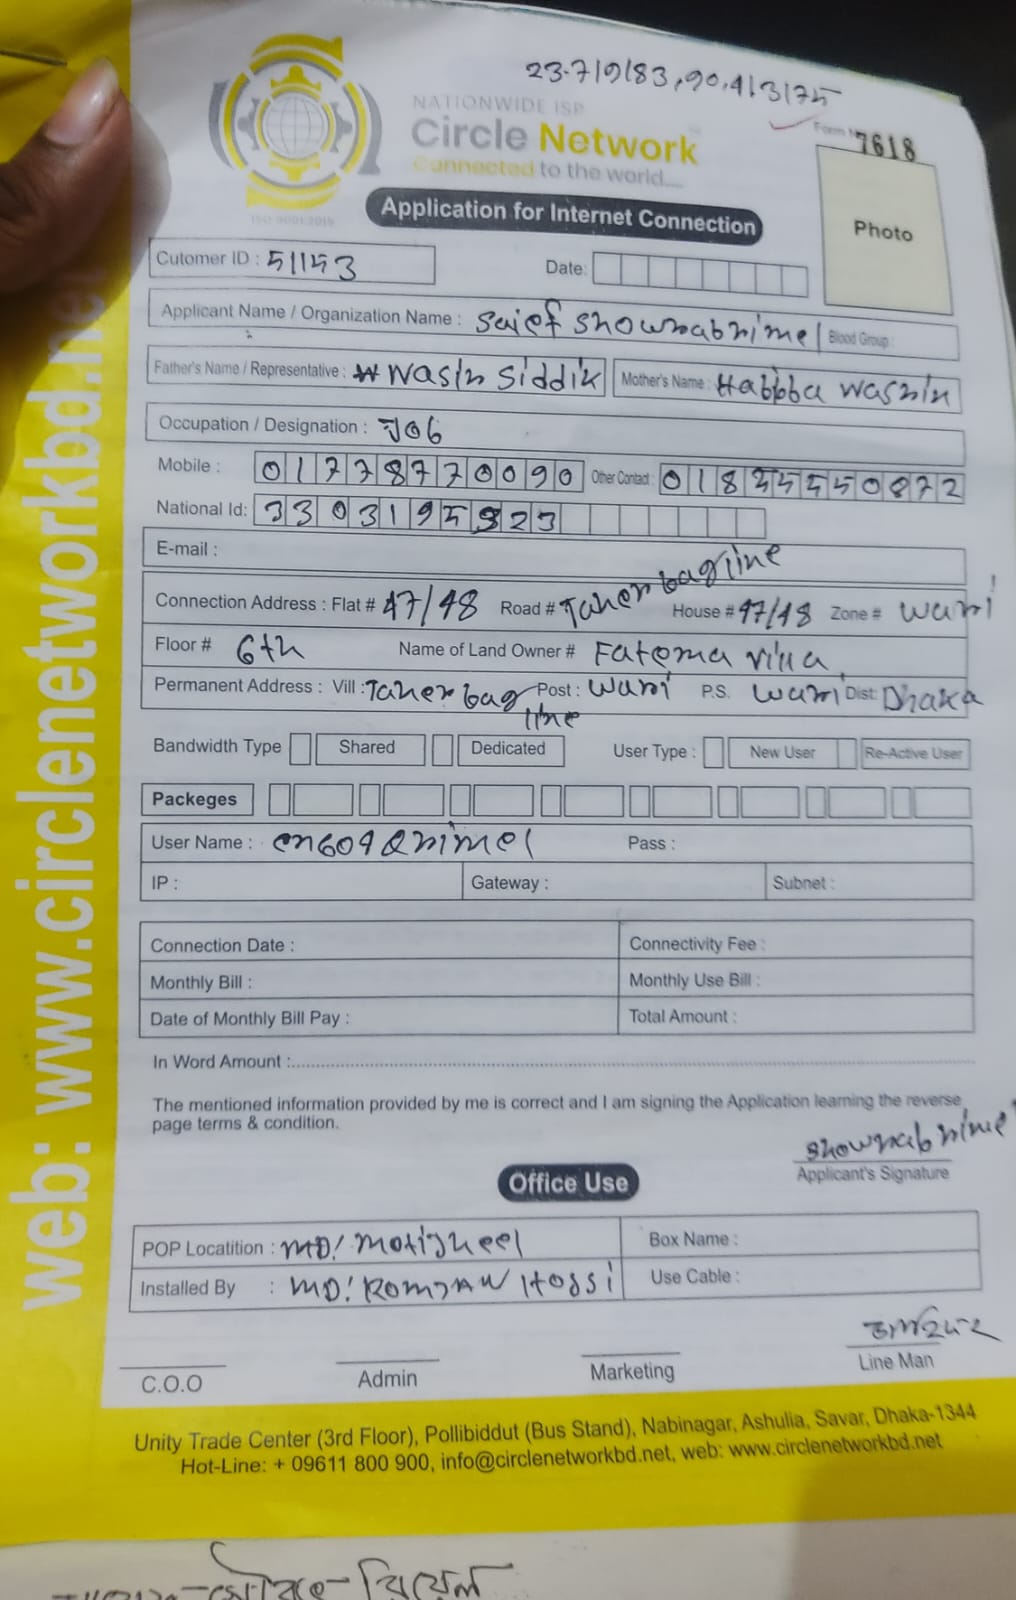 23.7/9/83,90.413175
NATIONWIDE ISP
Circle Network
Connected to the world....
Form No 7618
ISO 9001:2015
Application for Internet Connection
Photo
Cutomer ID : 51153
Date:
Applicant Name / Organization Name : Saief Shownabnime
Blood Group :
Father's Name / Representative : Wasin Siddik
Mother's Name : Habbba Washin
Occupation / Designation : Job
Mobile : 01778770090
Other Contact : 01835550872
National Id: 3303195923
E-mail :
Connection Address : Flat # 47/48 Road # Taher bag line House # 47/48 Zone # Wari
Floor # 6th Name of Land Owner # Fatema villa
Permanent Address : Vill : Taher bag line Post : Wari P.S. Wari Dist: Dhaka
Bandwidth Type Shared Dedicated User Type : New User Re-Active User
Packeges
User Name : Pass :
IP : Gateway : Subnet :
Connection Date : Connectivity Fee :
Monthly Bill : Monthly Use Bill :
Date of Monthly Bill Pay : Total Amount :
In Word Amount :
The mentioned information provided by me is correct and I am signing the Application learning the reverse
page terms & condition.
Shownabnime
Applicant's Signature
Office Use
POP Locatition : MD! Motijheel
Box Name :
Installed By : MD! Romjan Hossi
Use Cable :
C.O.O
Admin
Marketing
Line Man
Unity Trade Center (3rd Floor), Pollibiddut (Bus Stand), Nabinagar, Ashulia, Savar, Dhaka-1344
Hot-Line: + 09611 800 900, info@circlenetworkbd.net, web: www.circlenetworkbd.net
web: www.circlenetworkbd.net